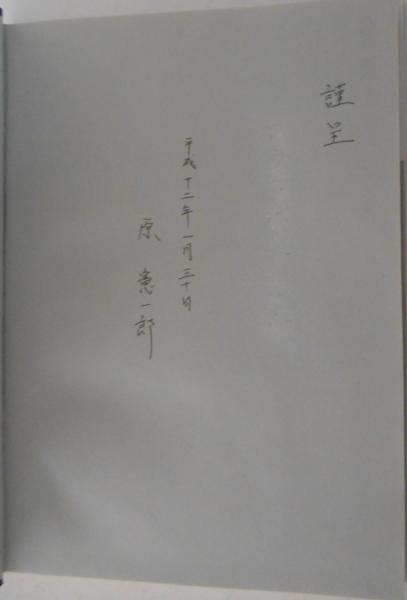 謹呈
平成十二年一月三十日
原憲一郎